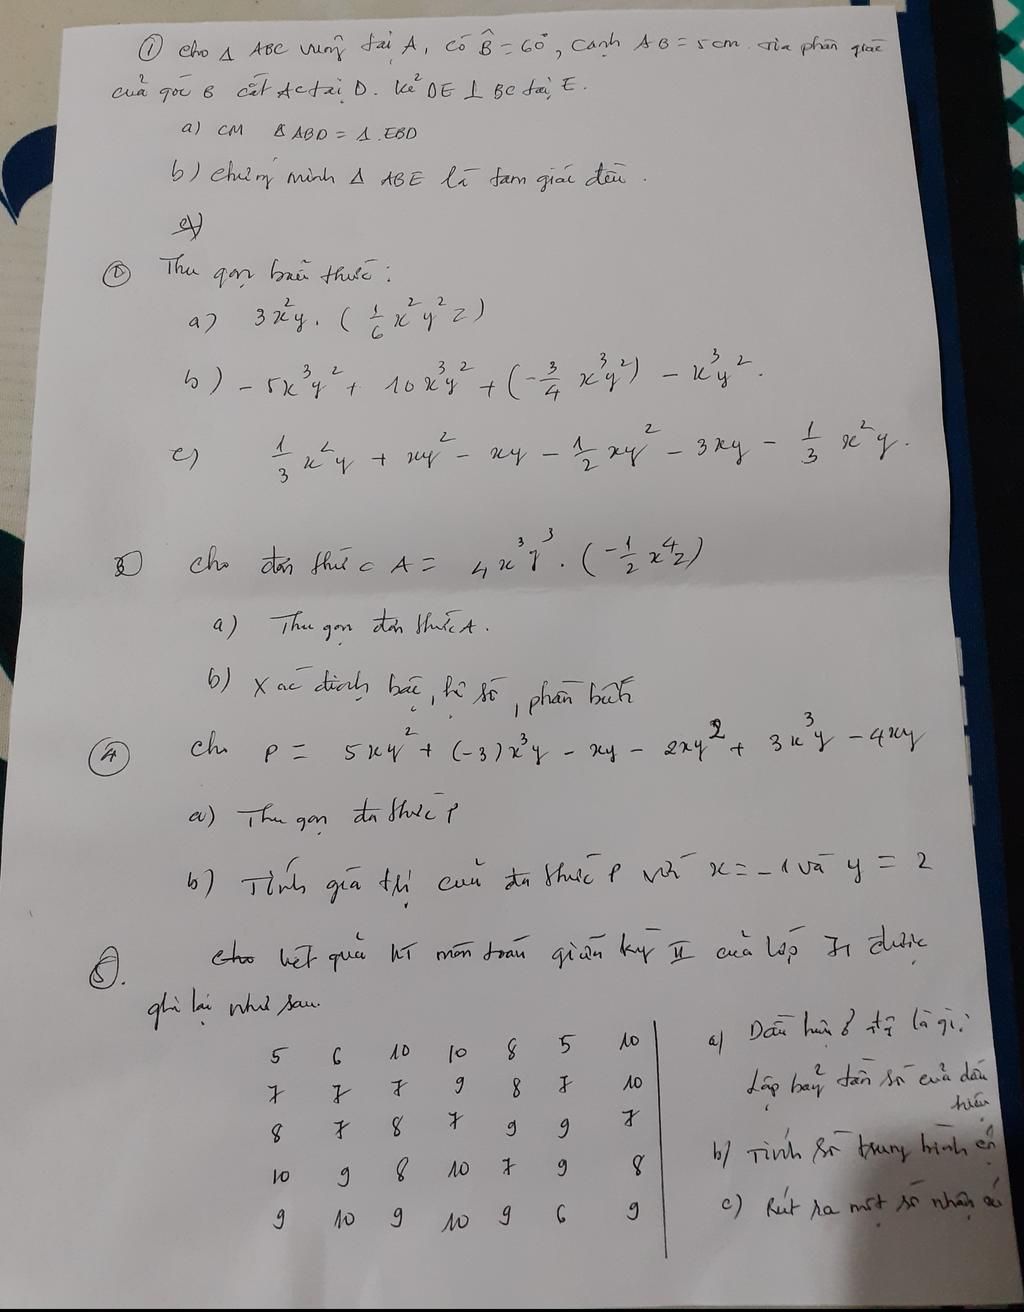 ① Cho Δ ABC vuông tại A, có B̂ = 60°, cạnh AB = 5cm. Tia phân giác
của góc B cắt AC tại D. Kẻ DE ⊥ BC tại E.
a) CM Δ ABD = Δ EBD
b) Chứng minh Δ ABE là tam giác đều.
② Thu gọn biểu thức:
a) 3x²y. (1/6 x²y²z)
b) -5x³y² + 10x³y² + (-3/4 x³y²) - x³y².
c) 1/3 x²y + xy² - xy - 1/2 xy² - 3xy - 1/3 x²y.
③ Cho đơn thức A = 4x³y³. (-1/2 x⁴z)
a) Thu gọn đơn thức A.
b) Xác định bậc, hệ số, phần biến
④ Cho P = 5xy² + (-3)x³y - xy - 2xy² + 3x³y - 4xy
a) Thu gọn đa thức P
b) Tính giá trị của đa thức P với x = -1 và y = 2
⑤. Cho kết quả môn toán giữa kỳ II của lớp 7₁ được
ghi lại như sau.
5 6 10 10 8 5 10
7 7 7 9 8 7 10
8 7 8 7 9 9 7
10 9 8 10 7 9 8
9 10 9 10 9 6 9
a) Dấu hiệu ở đây là gì?
Lập bảng tần số của dấu
hiệu
b) Tính số trung bình cộ
c) Rút ra một số nhận